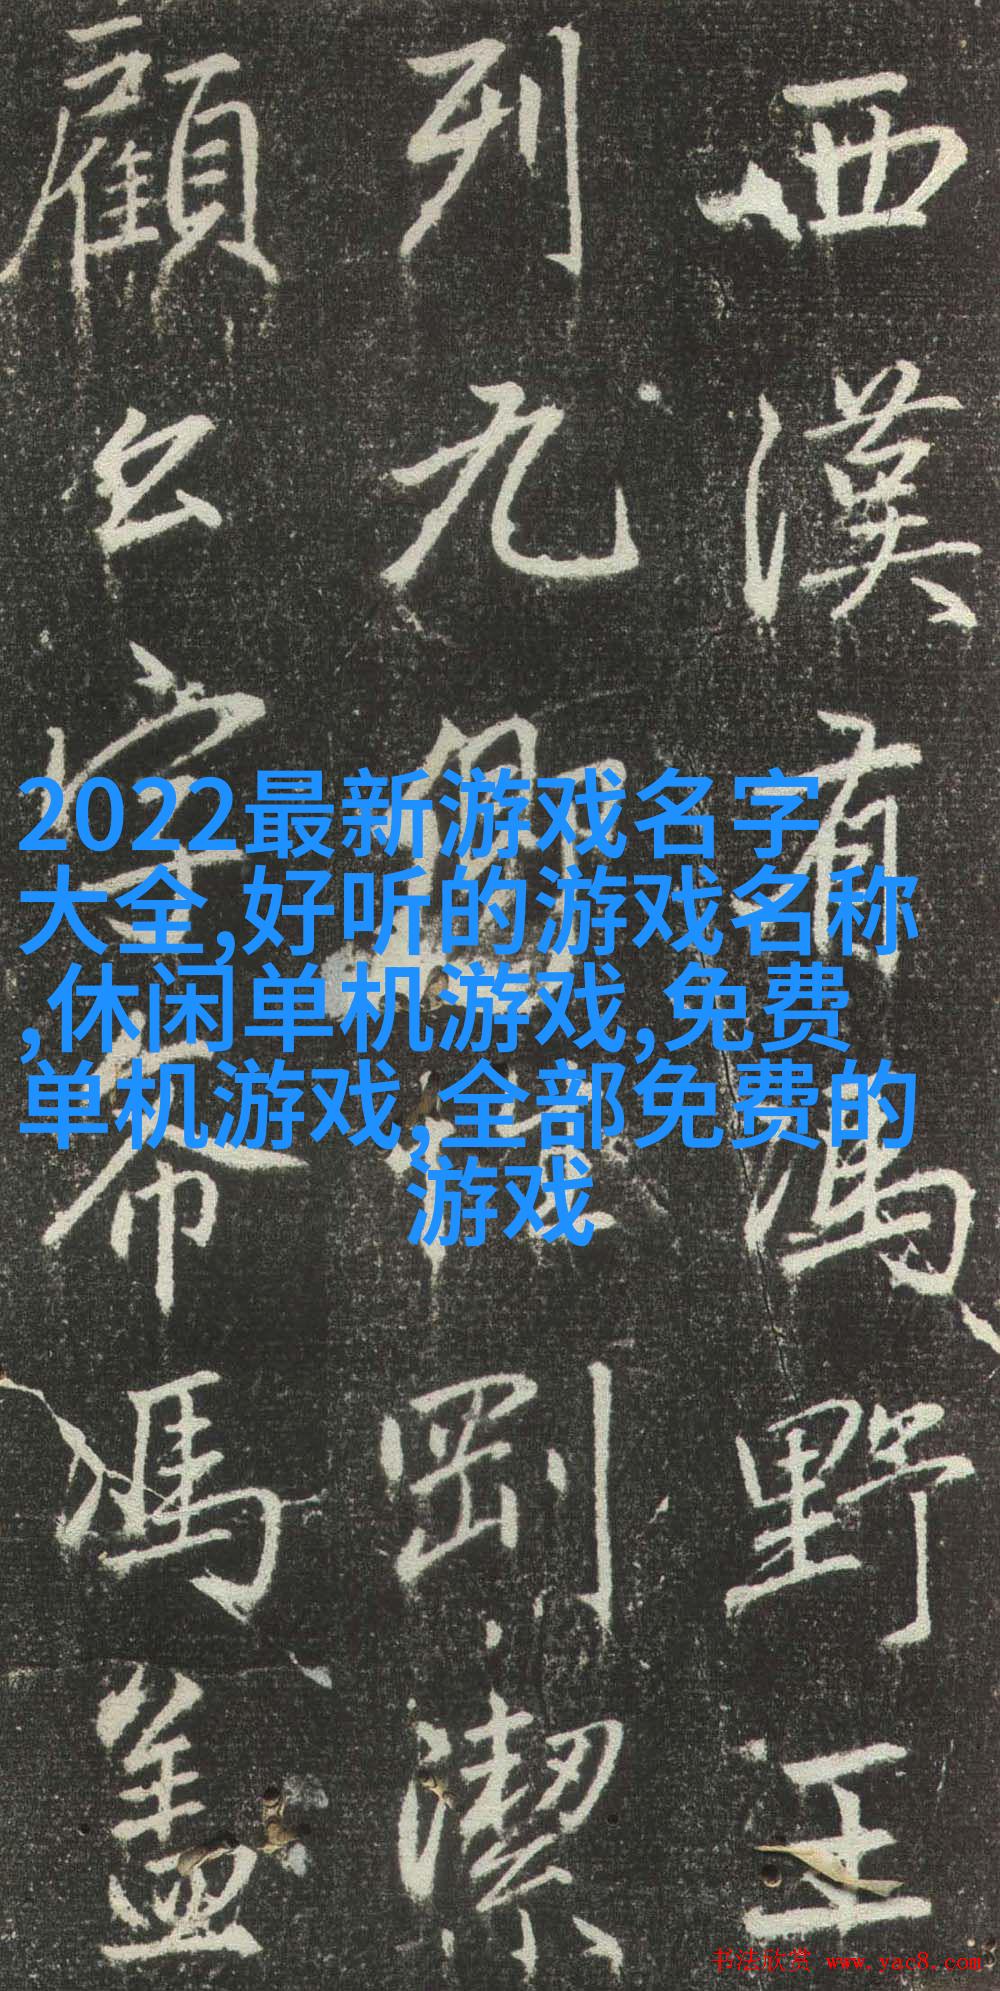 西漢有馮野王
列九卿剛潔
顧公字希馮盖
2022最新游戏名字
大全,好听的游戏名称
,休闲单机游戏,免费
单机游戏,全部免费的
游戏
书法欣赏 www.yac8.com